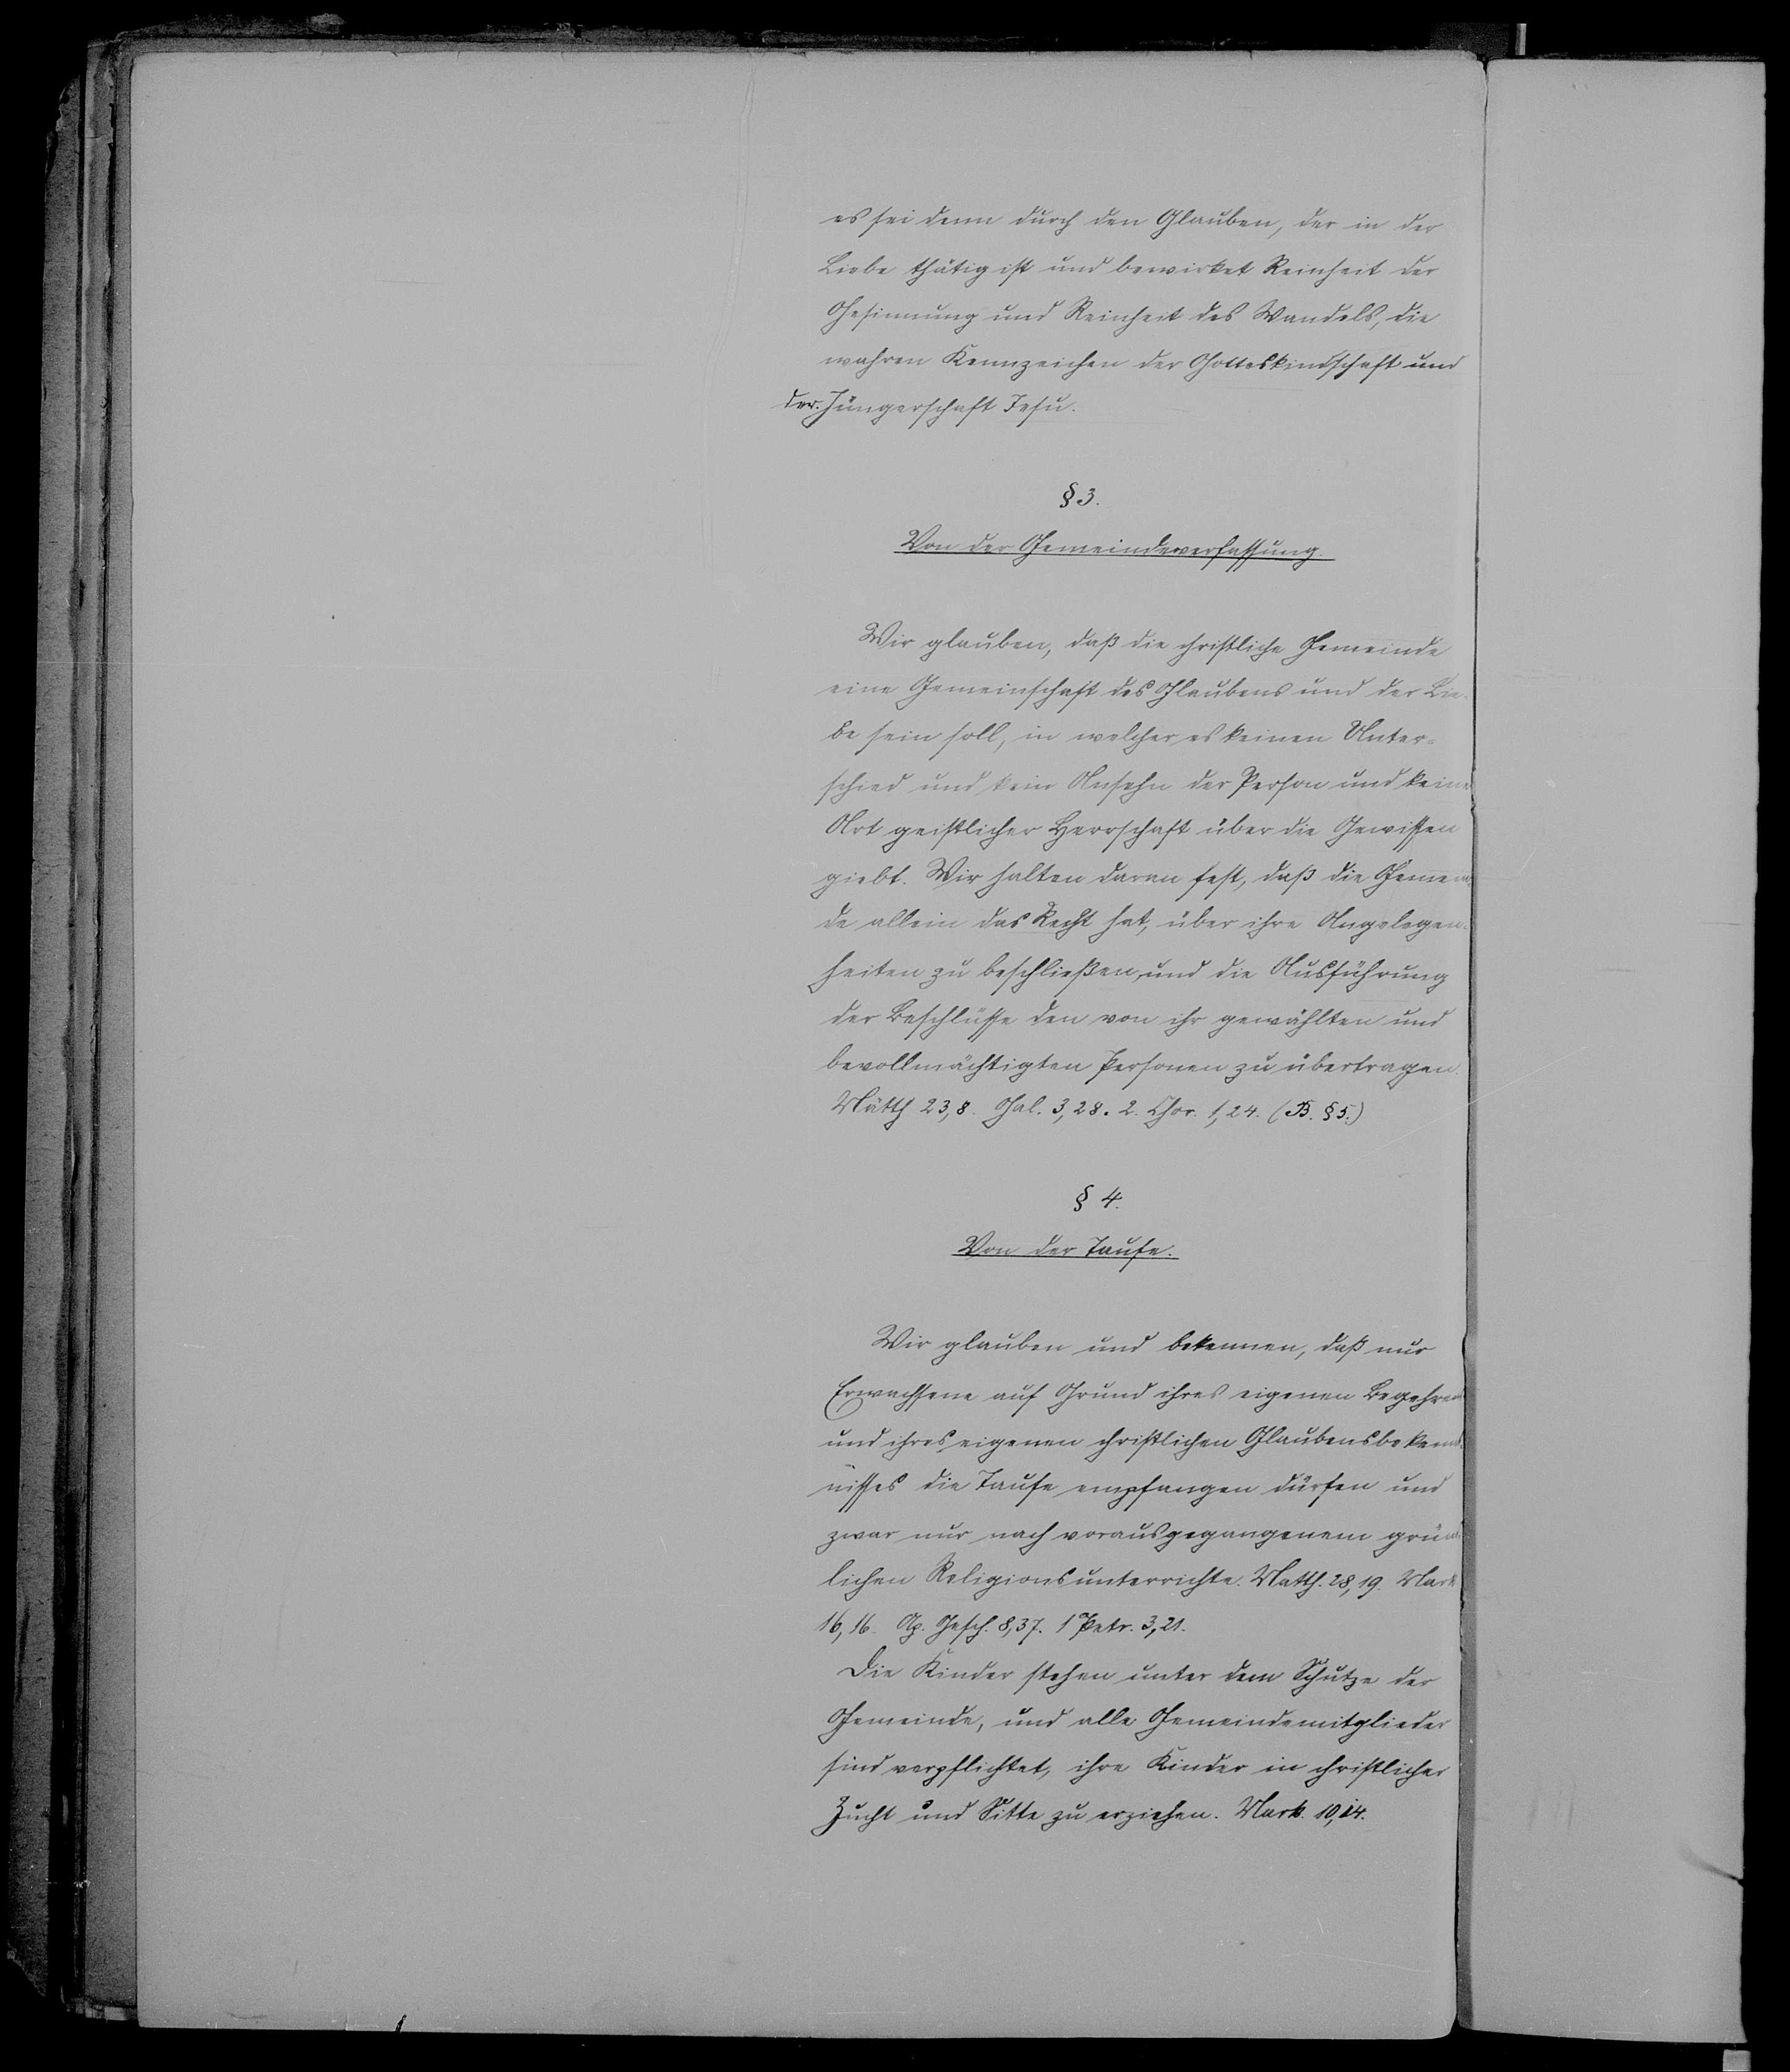 es sei denn durch den Glauben, der in der
Liebe thätig ist und bewirket Reinheit der
Gesinnung und Reinheit des Wandels, die
wahren Kennzeichen der Gotteskindschaft und
der Jüngerschaft Jesu.
§ 3.
Von der Gemeindeverfassung.
Wir glauben, daß die christliche Gemeinde
eine Gemeinschaft des Glaubens und der Lie-
be sein soll, in welcher es keinen Unter-
schied und kein Ansehn der Person und keine
Art geistlicher Herrschaft über die Gewissen
giebt. Wir halten daran fest, daß die Gemein-
de allein das Recht hat, über ihre Angelegen-
heiten zu beschließen, und die Ausführung
der Beschlüsse den von ihr gewählten und
bevollmächtigten Personen zu übertragen.
Matth 23,8. Gal. 3,28. 2. Chor. 1,24. (B. § 5.)
§ 4.
Von der Taufe.
Wir glauben und bekennen, daß nur
Erwachsene auf Grund ihres eigenen Begehrens
und ihres eigenen christlichen Glaubensbekennt-
nisses die Taufe empfangen dürfen und
zwar nur nach vorausgegangenem gründ-
lichen Religionsunterrichte. Matth. 28,19. Mark.
16,16. Ap. Gesch. 8,37. 1 Petr. 3,21.
Die Kinder stehen unter dem Schutze der
Gemeinde, und alle Gemeindemitglieder
sind verpflichtet, ihre Kinder in christlicher
Zucht und Sitte zu erziehen. Mark. 10,14.